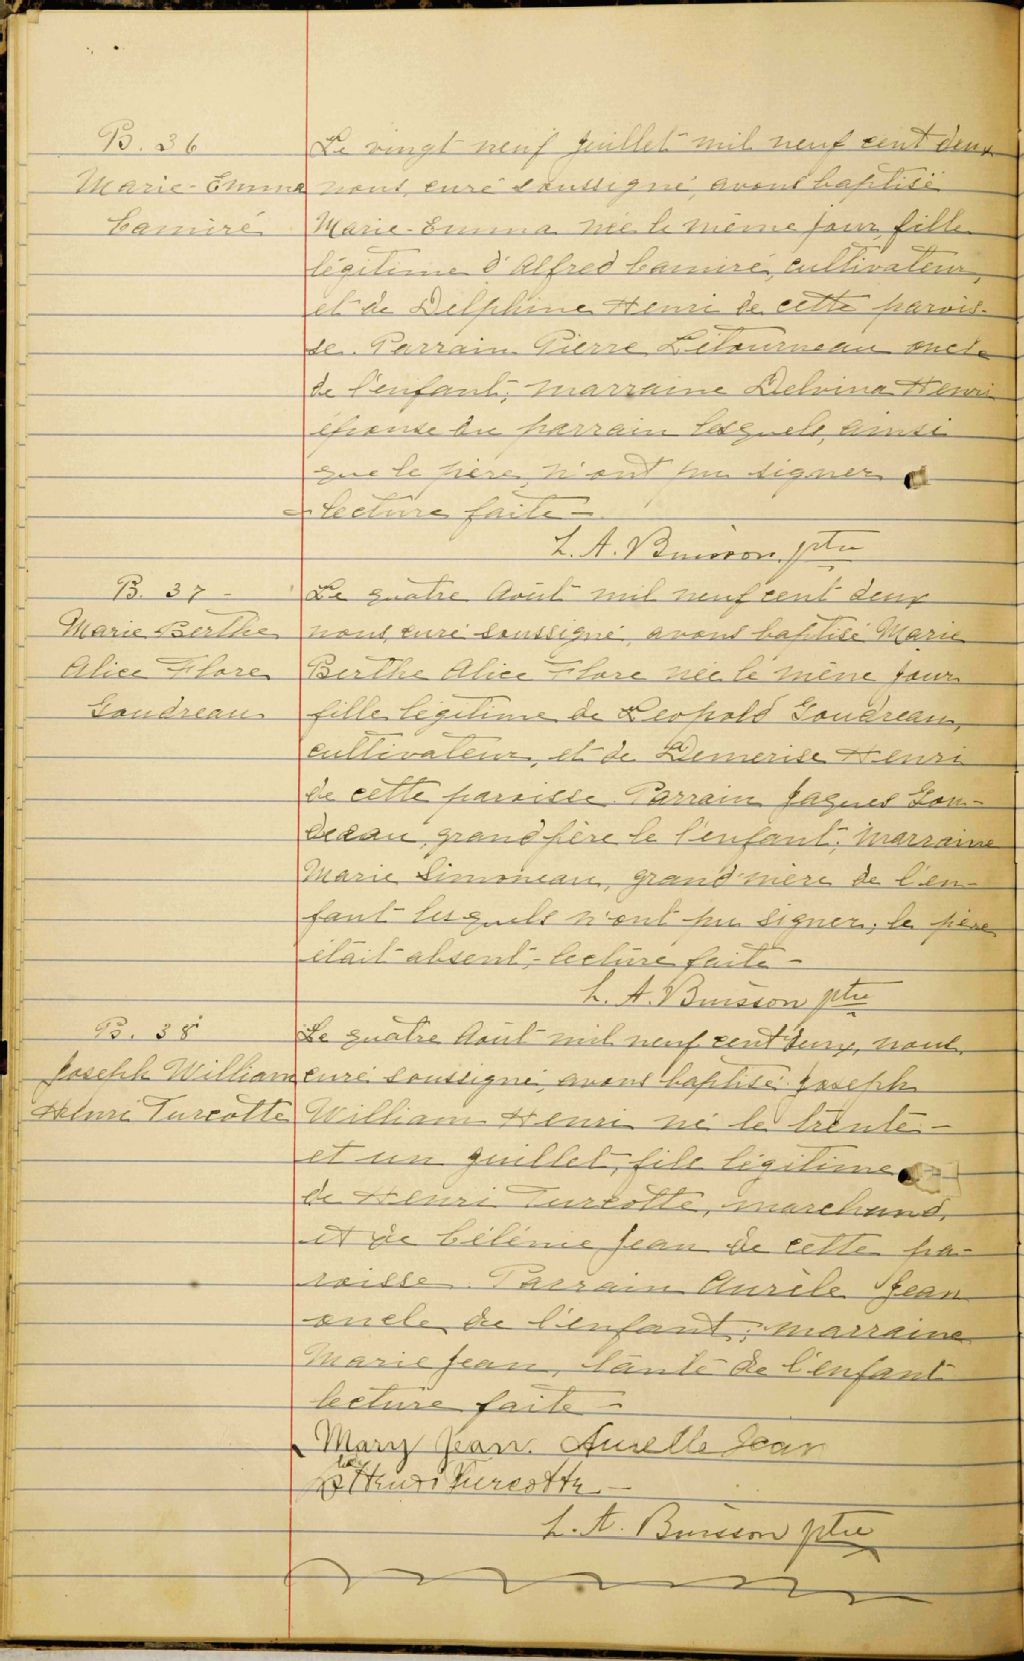 B. 36
Marie-Emma
Camiré
Le vingt neuf Juillet mil neuf cent deux
nous, curé soussigné, avons baptisé
Marie-Emma née le même jour, fille
légitime d'Alfred Camiré, cultivateur,
et de Delphine Henri de cette parois-
se. Parrain Pierre Létourneau oncle
de l'enfant; marraine Delvina Henri
épouse du parrain lesquels, ainsi
que le père, n'ont pu signer
- lecture faite -
L. A. Buisson, ptre
B. 37 -
Marie Berthe
Alice Flore
Goudreau
Le quatre Août mil neuf cent deux
nous, curé soussigné, avons baptisé Marie
Berthe Alice Flore née le même jour
fille légitime de Leopold Goudreau,
cultivateur, et de Demerise Henri
de cette paroisse. Parrain Jaques Gou-
dreau, grand père le l'enfant; marraine
Marie Simoneau, grand'mère de l'en-
fant lesquels n'ont pu signer; le père
était absent, - lecture faite -
L. A. Buisson ptre
B. 38
Joseph William
Henri Turcotte
Le quatre Août mil neuf cent deux, nous,
curé soussigné, avons baptisé Joseph
William Henri né le trente-
et un Juillet, fils légitime
de Henri Turcotte, marchand,
et de Célénie Jean de cette pa-
roisse. Parrain Aurèle Jean
oncle de l'enfant; marraine
Marie Jean, tante de l'enfant
lecture faite -
Mary Jean. Aurelle Jean
Henri Turcotte -
L. A. Buisson ptre